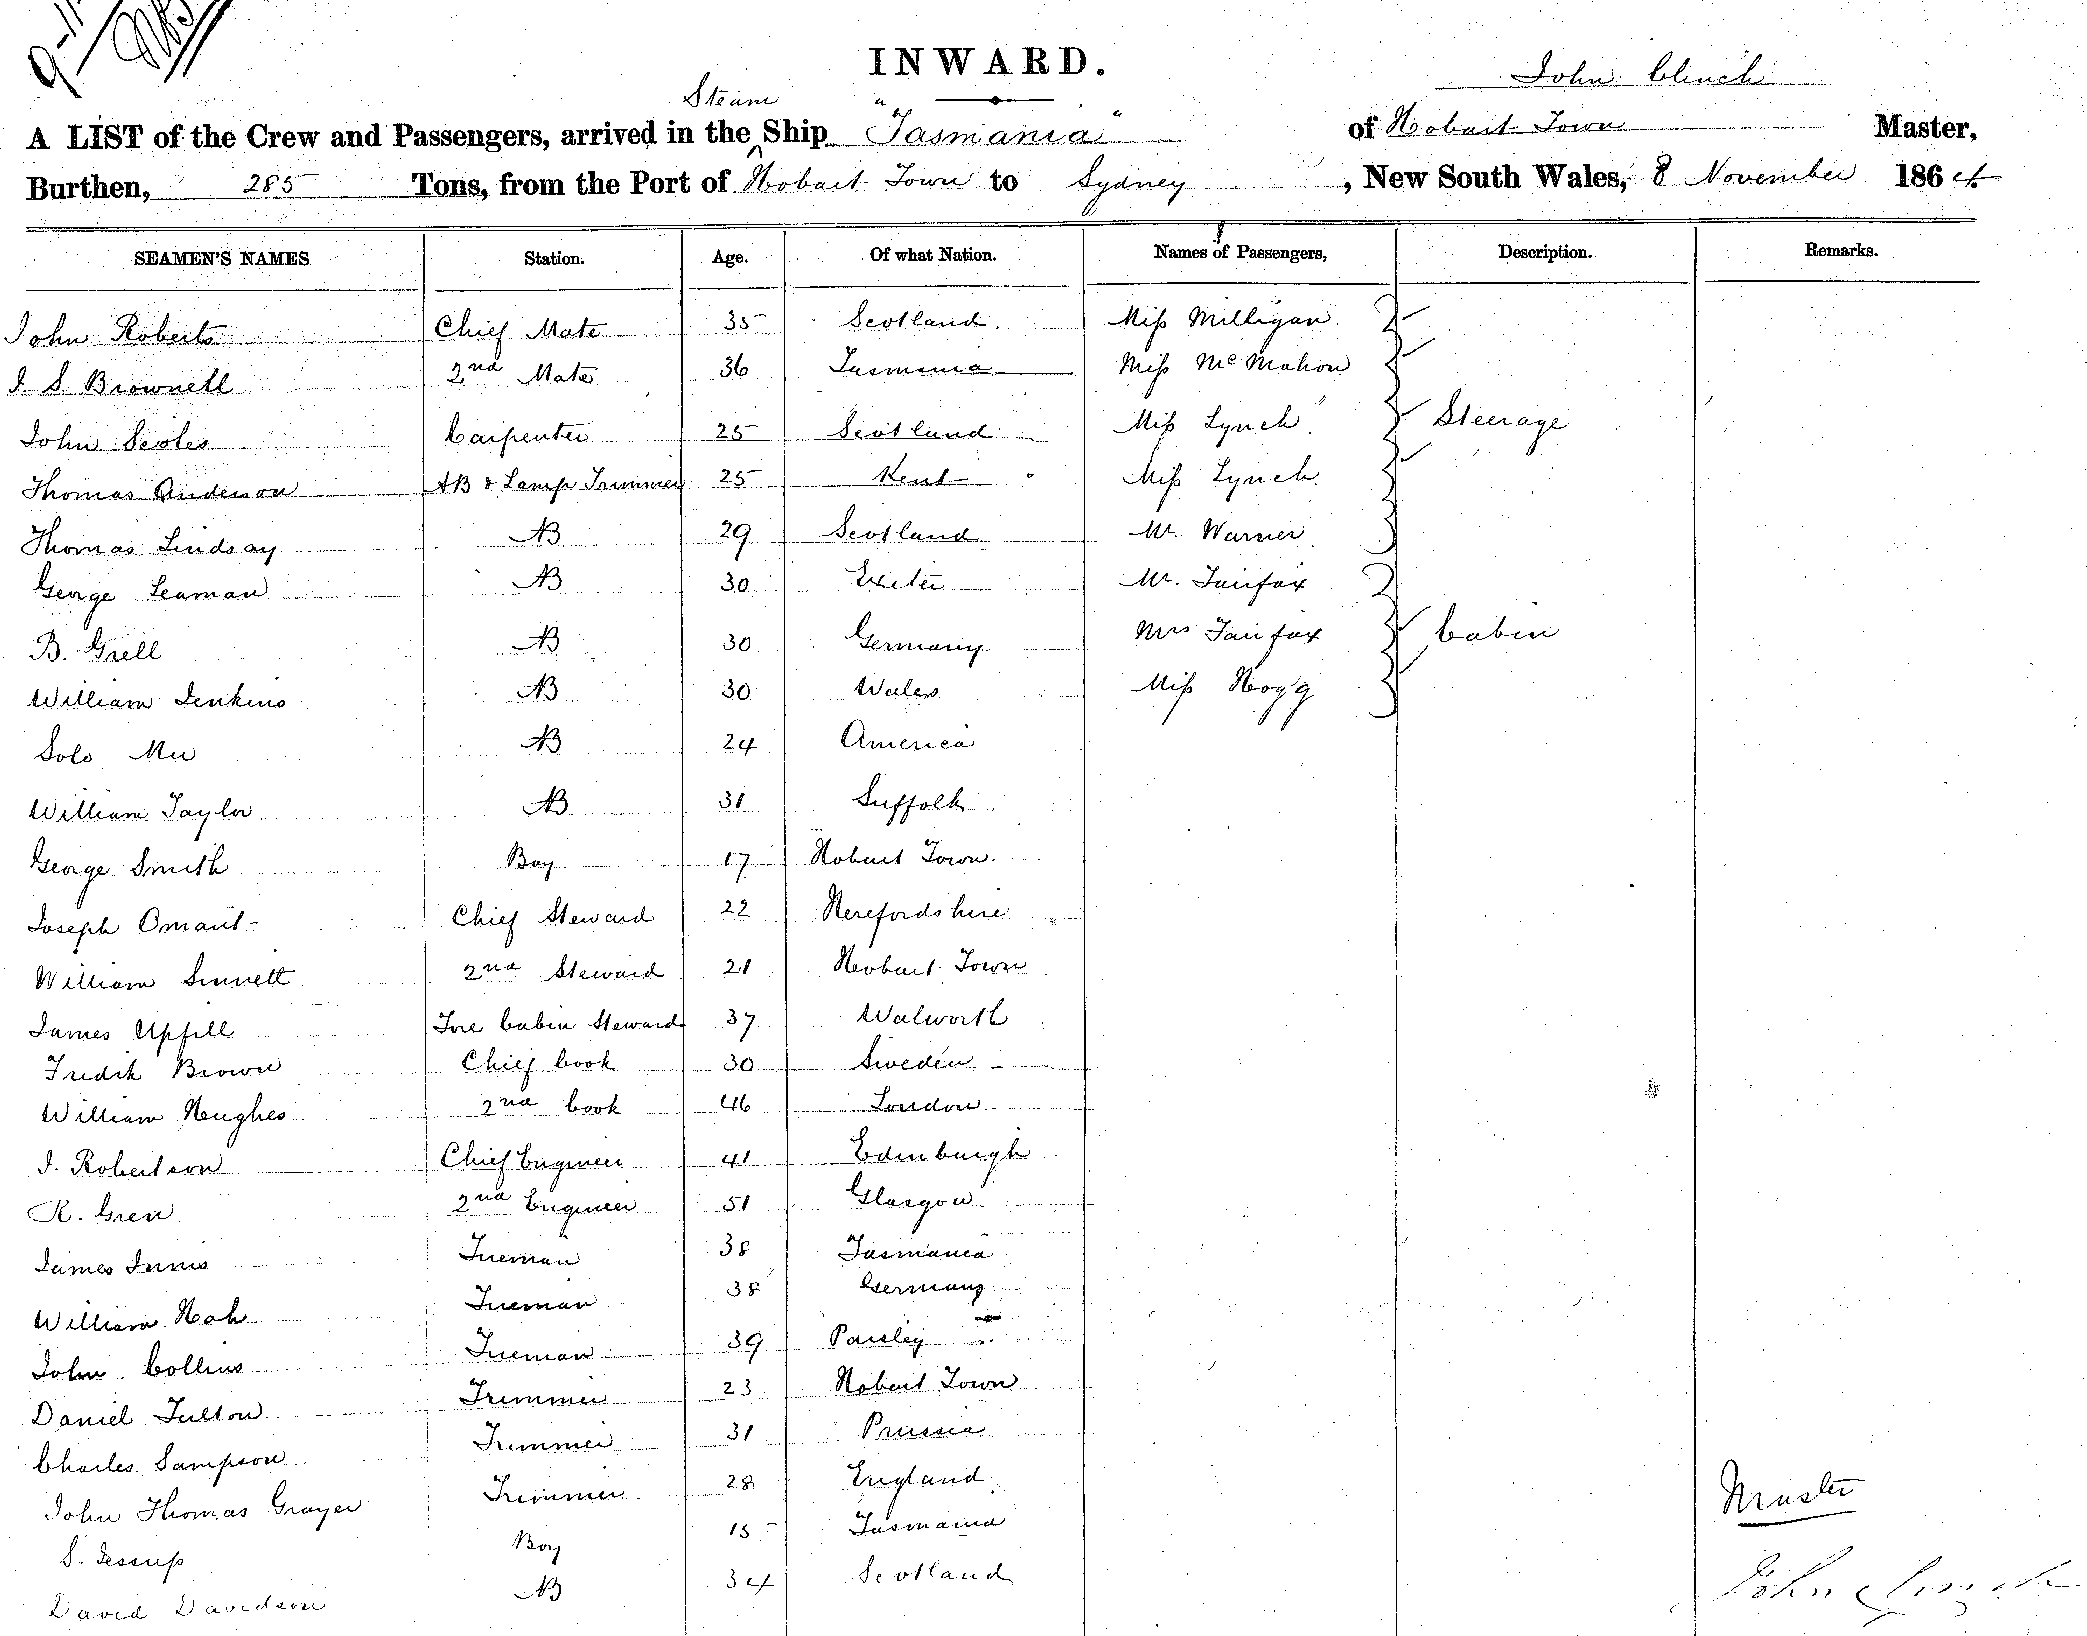 INWARD.
John Clinch
Steam
A LIST of the Crew and Passengers, arrived in the Ship "Tasmania" of Hobart Town Master,
Burthen, 285 Tons, from the Port of Hobart Town to Sydney, New South Wales, 8 November 1864
SEAMEN'S NAMES Station. Age. Of what Nation. Names of Passengers, Description. Remarks.
John Roberts Chief Mate 35 Scotland Miss Milligan
J. S. Brownell 2nd Mate 36 Tasmania Miss McMahon
John Scoles Carpenter 25 Scotland Miss Lynch Steerage
Thomas Anderson AB & Lamp Trimmer 25 Kent Miss Lynch
Thomas Lindsay AB 29 Scotland Mr. Warner
George Seaman AB 30 Exeter Mr. Fairfax
B. Grell AB 30 Germany Mrs Fairfax Cabin
William Jenkins AB 30 Wales Miss Hogg
Solo Mu AB 24 America
William Taylor AB 31 Suffolk
George Smith Boy 17 Hobart Town
Joseph Omant Chief Steward 22 Herefordshire
William Sinnett 2nd Steward 21 Hobart Town
James Upfill Fore Cabin Steward 37 Walworth
Fredk Brown Chief Cook 30 Sweden
William Hughes 2nd Cook 46 London
J. Robertson Chief Engineer 41 Edinburgh
R. Gren 2nd Engineer 51 Glasgow
James Innis Fireman 38 Tasmania
William Hoh Fireman 38 Germany
John Collins Fireman 39 Paisley
Daniel Fulton Trimmer 23 Hobart Town
Charles Sampson Trimmer 31 Prussia
John Thomas Grayer Trimmer 28 England
S. Jessup Boy 15 Tasmania
David Davidson AB 34 Scotland
Master
John Clinch